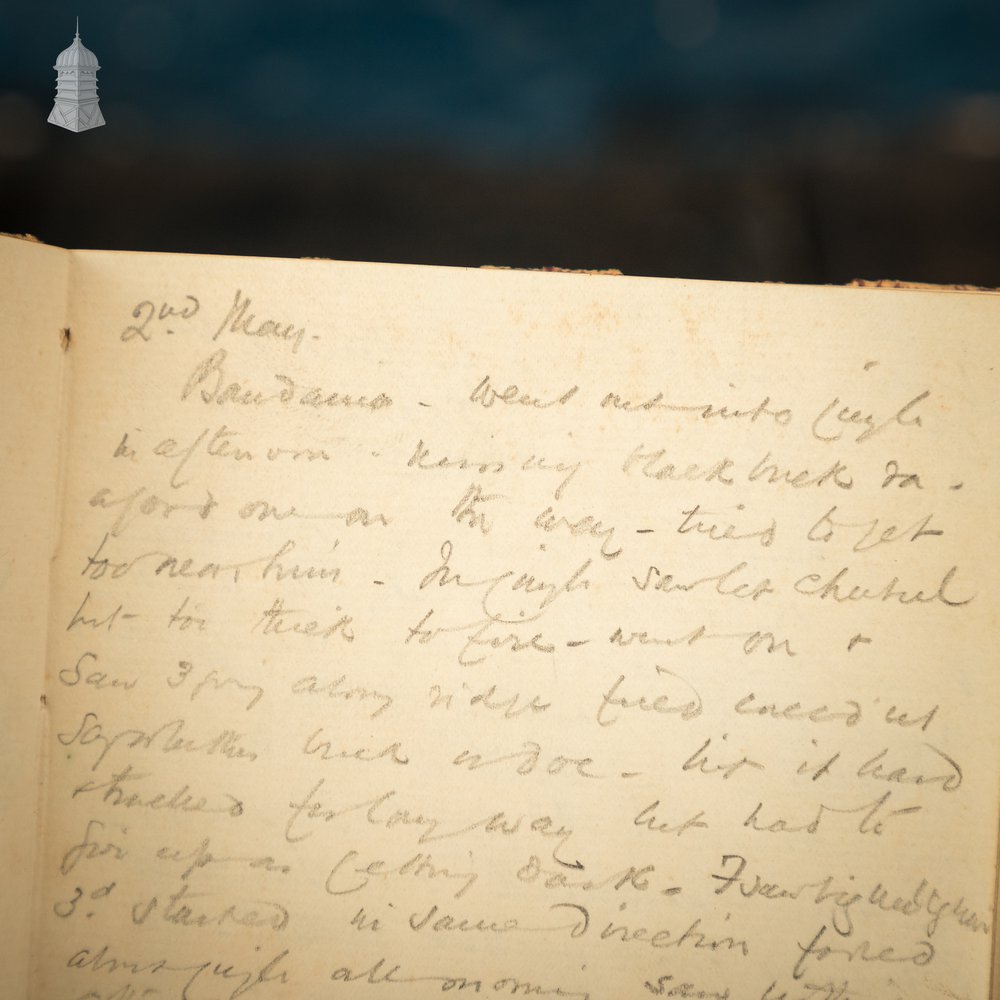 2nd May.
Bandama - Went out into jungle
in afternoon - missing black buck
afoot one on the way - tried to get
too near him - In jungle saw lot cheetul
but too thick to fire - went on +
Saw 3 going along ridge fired couldn't
say whether buck or doe - hit it hard
+ tracked for long way but had to
give up as getting dark - I saw big
3d started in same direction
along jungle all morning saw